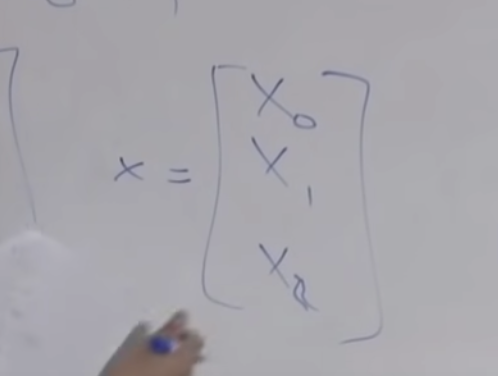 x = [ X₀
X₁
X₂ ]